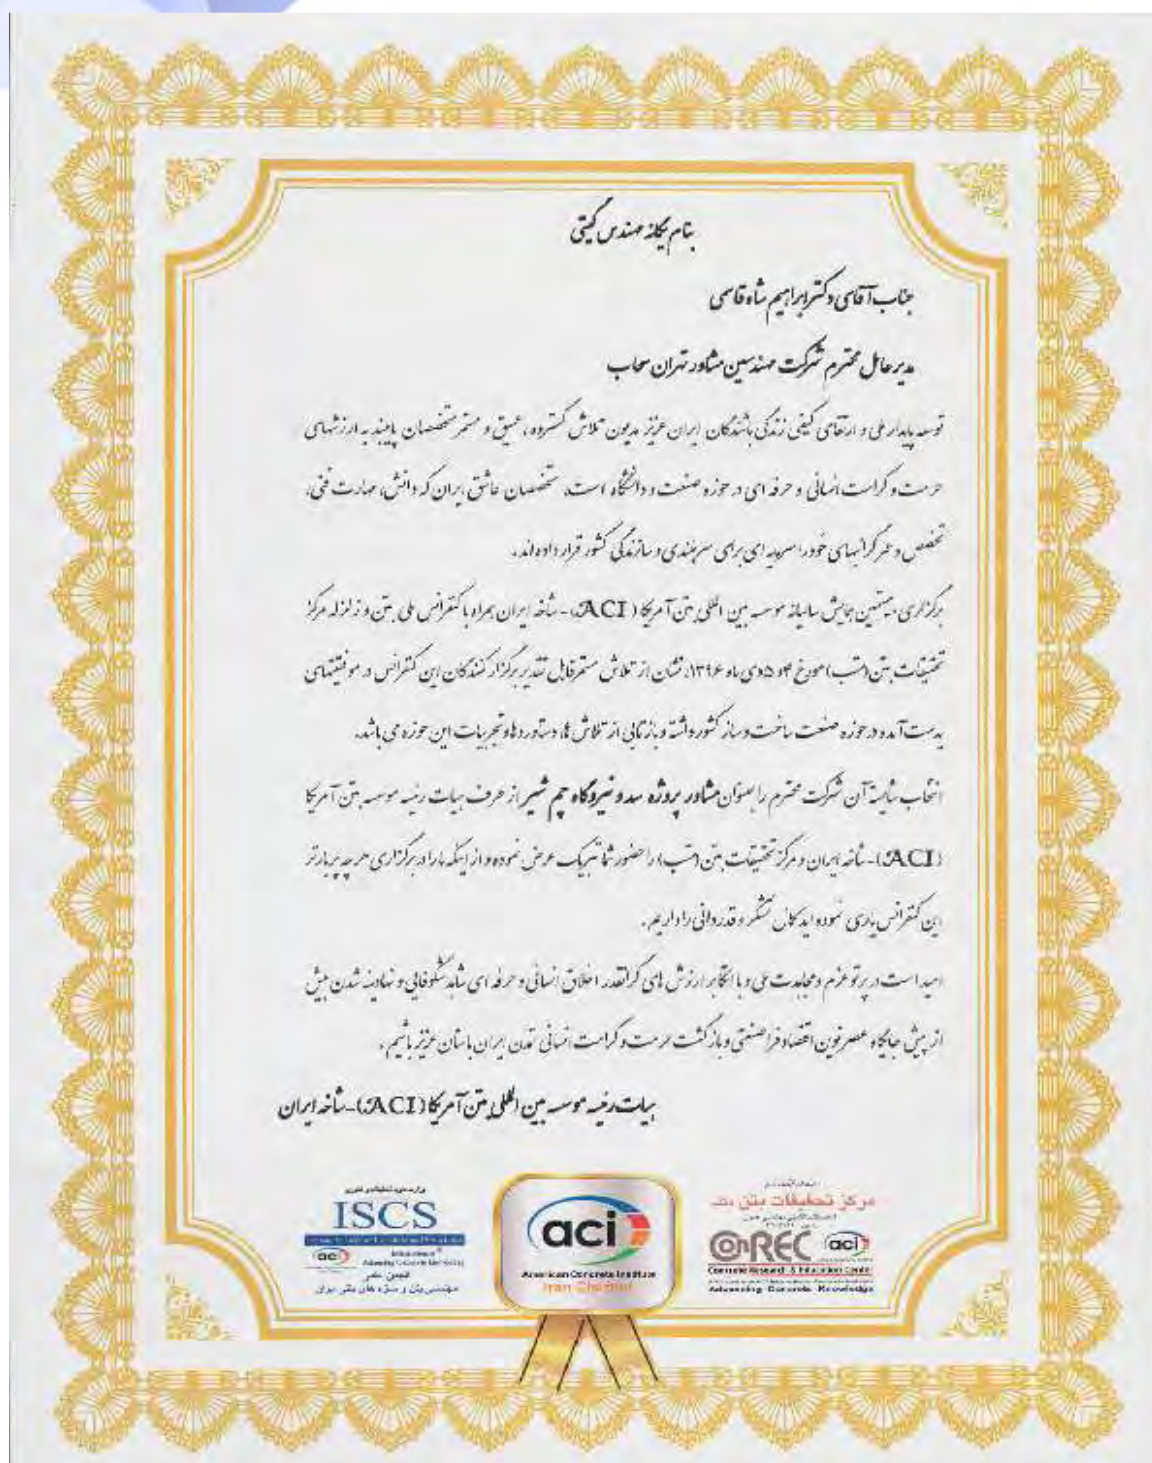 بنام یگانه مهندس گیتی
جناب آقای دکتر ابراهیم شاه قاسمی
مدیر عامل محترم شرکت مهندسین مشاور تهران سحاب
توسعه پایدار ملی و ارتقای کیفی زندگی باشندگان ایران عزیز مدیون تلاش گسترده، عمیق و مستمر متخصصان پایبند به ارزشهای
حرمت و کرامت انسانی و حرفه ای در حوزه صنعت و دانشگاه است. متخصصان عاشق ایران که دانش، مهارت فنی،
تخصص و عمر گرانبهای خود را سرمایه ای برای سربلندی و سازندگی کشور قرار داده اند.
برگزاری همایش سالیانه موسسه بین المللی بتن آمریکا (ACI)-شاخه ایران همراه با کنفرانس ملی بتن و زلزله مرکز
تحقیقات بتن (متب) مورخ ۴و ۵دی ماه ۱۳۹۶، نشان از تلاش مستمر قابل تقدیر برگزار کنندگان این کنفرانس در موفقیتهای
بدست آمده در حوزه صنعت ساخت و ساز کشور داشته و بازتابی از تلاش ها، دستاوردها و تجربیات این حوزه می باشد.
انتخاب شایسته آن شرکت محترم را بعنوان مشاور پروژه سد و نیروگاه چم شیر از طرف هیات رئیسه موسسه بتن آمریکا
(ACI)-شاخه ایران و مرکز تحقیقات بتن (متب) را حضور شما تبریک عرض نموده و از اینکه ما را در برگزاری هر چه پربارتر
این کنفرانس یاری نموده اید کمال تشکر و قدردانی را داریم.
امید است در پرتو عزم و مجاهدت ملی و با اتکا بر ارزش های گرانقدر اخلاق انسانی و حرفه ای شاهد شکوفایی و نهادینه شدن بیش
از پیش جایگاه عصر نوین اقتصاد فراصنعتی و بازگشت حرمت و کرامت انسانی تمدن ایران باستان عزیز باشیم.
هیات رئیسه موسسه بین المللی بتن آمریکا (ACI)-شاخه ایران
ISCS
aci
Advancing Concrete Knowledge
انجمن علمی
مهندسی بتن و سازه های بتنی ایران
aci
American Concrete Institute
Iran Chapter
مرکز تحقیقات بتن متب
ConREC aci
Concrete Research & Education Center
Advancing Concrete Knowledge